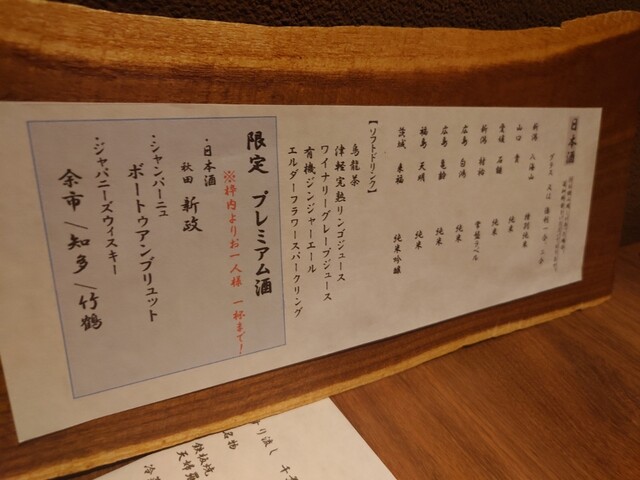 日本酒
グラス 又は 徳利一合、二合
新潟 八海山 特別純米
山口 貴 純米
愛媛 石鎚 純米
新潟 村祐 常盤ラベル
広島 白鴻 純米
広島 亀齢 純米
福島 天明 純米
茨城 来福 純米吟醸
【ソフトドリンク】
烏龍茶
津軽完熟リンゴジュース
ワイナリーグレープジュース
有機ジンジャーエール
エルダーフラワースパークリング
限定 プレミアム酒
※枠内よりお一人様 一杯まで!
・日本酒
秋田 新政
・シャンパーニュ
ポートゥアンブリュット
・ジャパニーズウィスキー
余市/知多/竹鶴
名物
鉄板焼